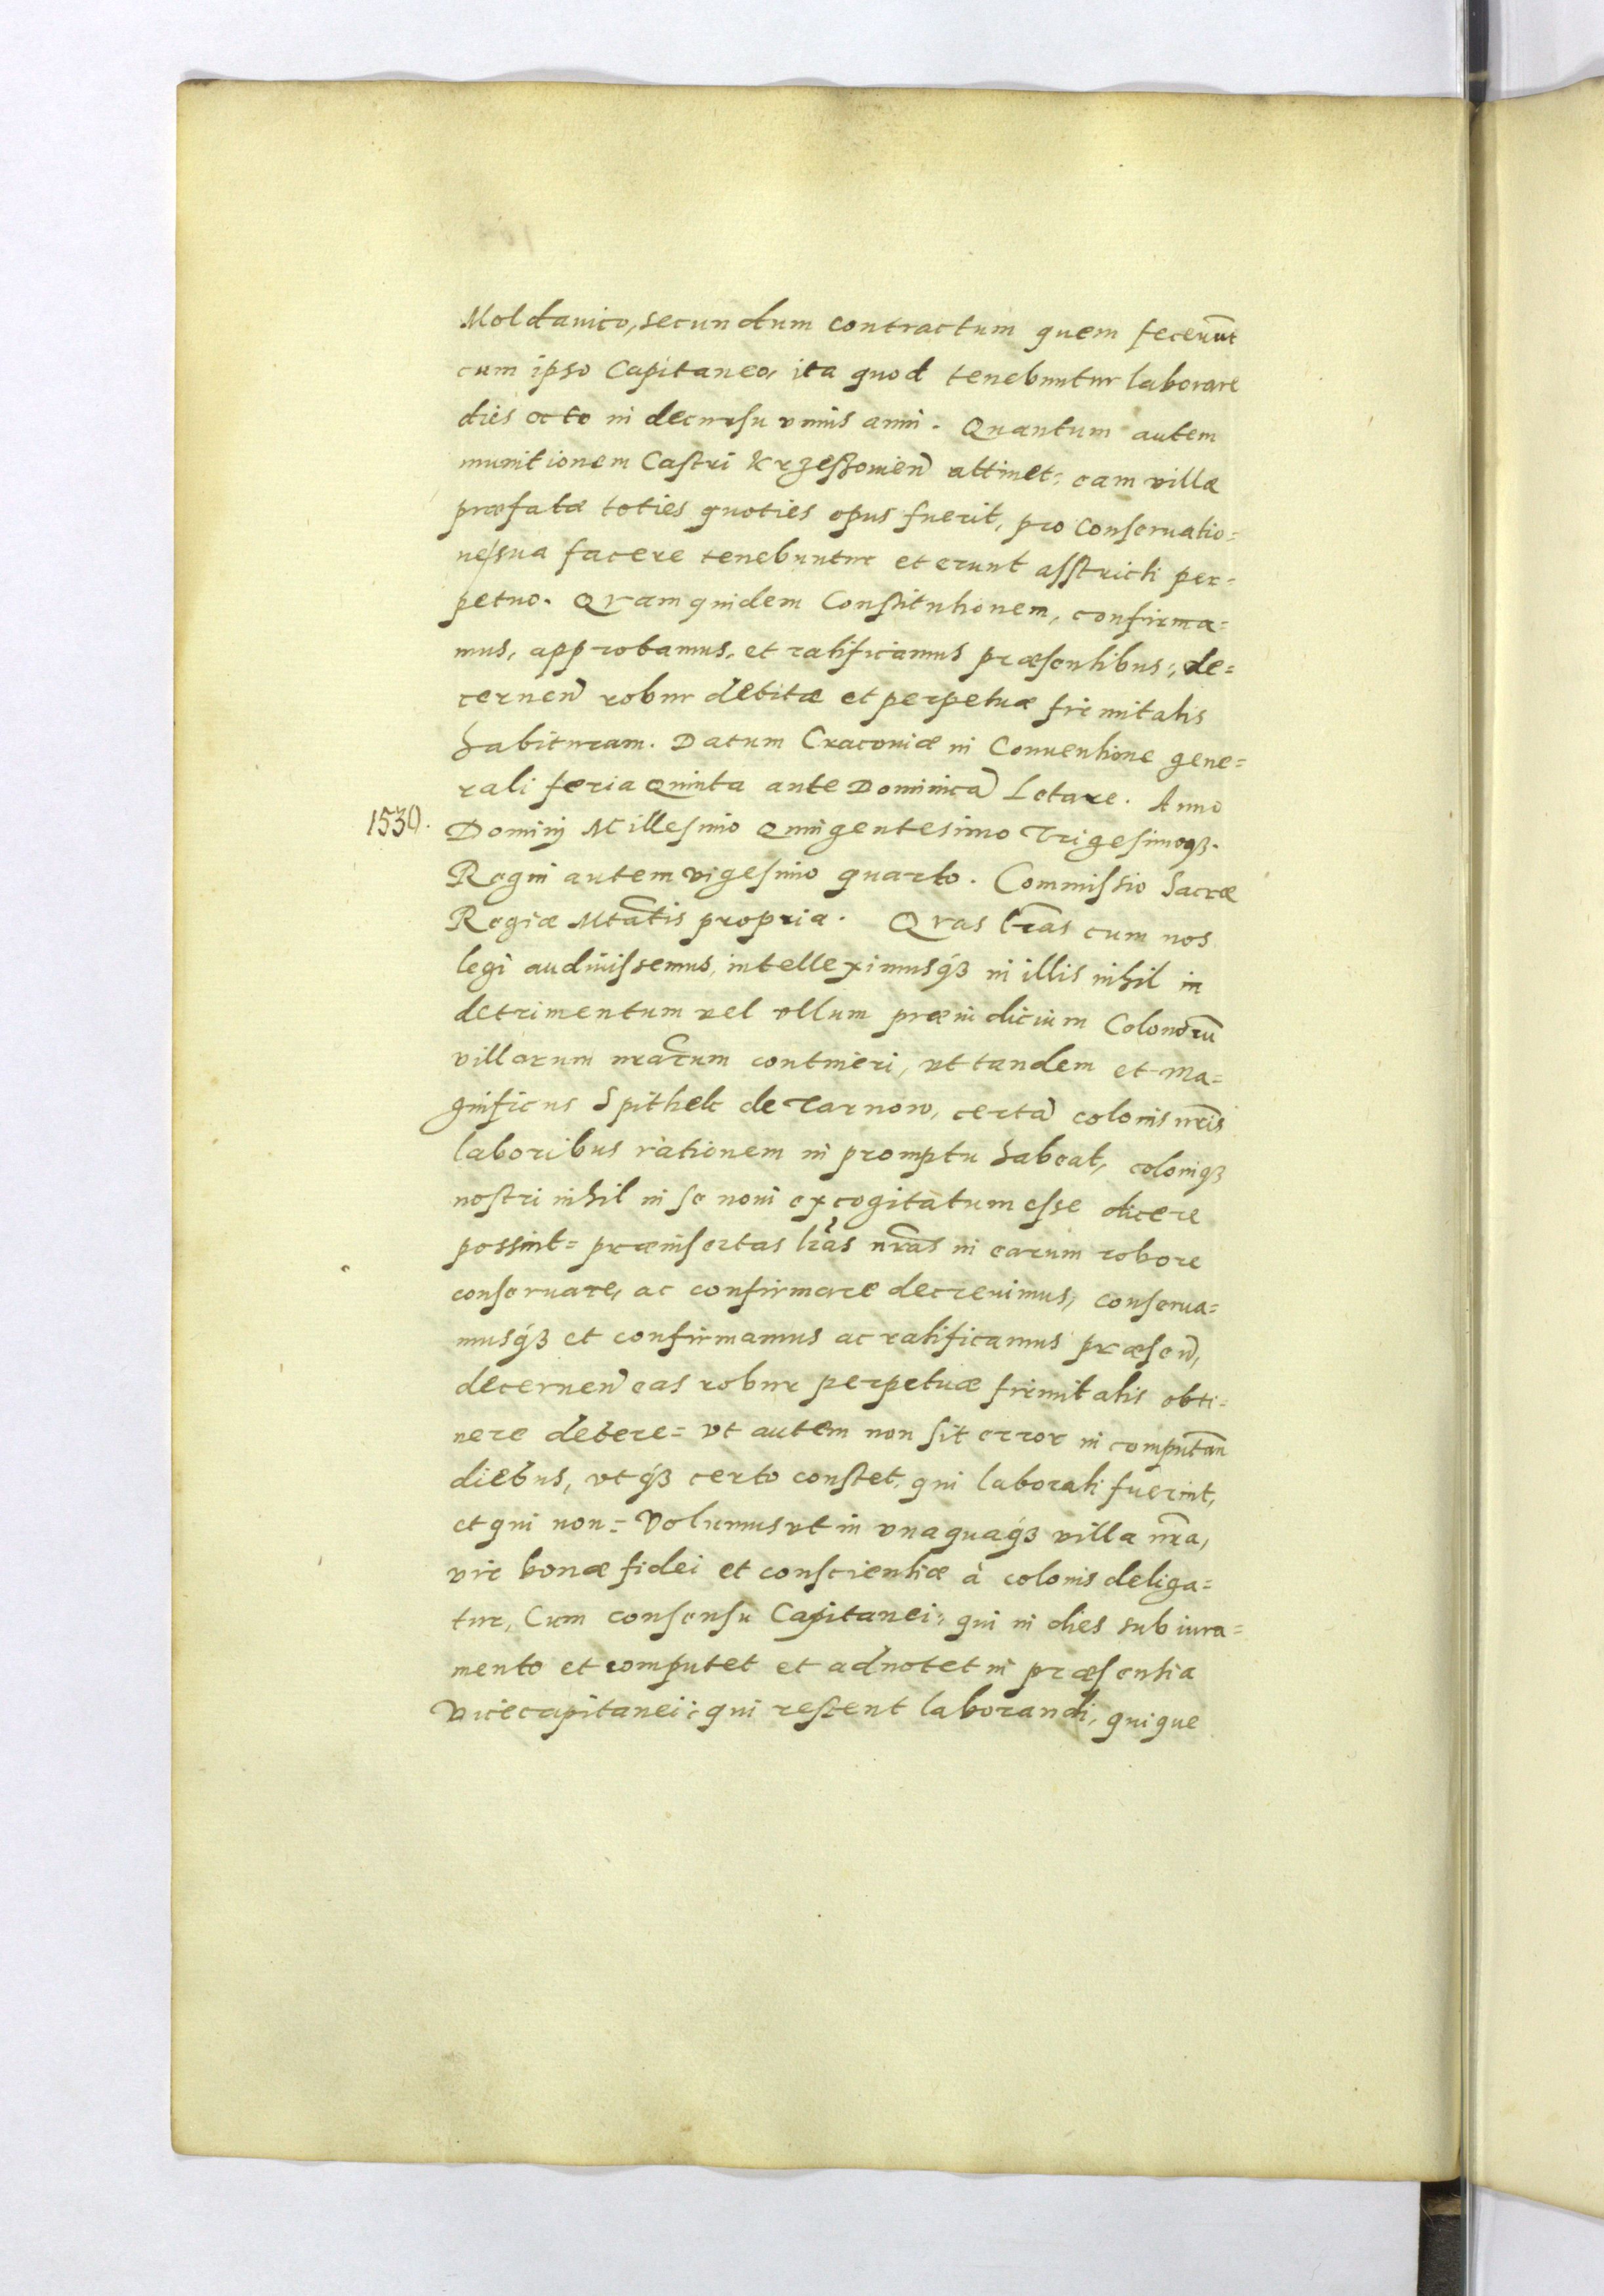 Moldauico, secundum contractum quem feceru͠t
cum ipso Capitaneo, ita quod tenebuntur laborare
dies octo in decursu vnius anni. Quantum autem
munitionem Castri Krzeszouien̄ attinet, eam villæ
præfatæ toties quoties opus fuerit, pro conseruatio=
ne sua facere tenebuntur et erunt asstricti per=
petuo. Qvam quidem Constitutionem, confirma=
mus, approbamus, et ratificamus præsentibus, de=
cernen̄ robur debitæ et perpetuæ firmitatis
habituram. Datum Cracouiæ in Conuentione gene=
rali feria Quinta ante Dominicā Letare. Anno
1530. Dominij Millesimo Quingentesimo Trigesimoqꝫ.
Regni autem vigesimo quarto. Commissio Sacræ
Regiæ Mta͠tis propria. Qvas lr͠as cum nos
legi audiuissemus, intelleximusqꝫ in illis nihil in
detrimentum vel vllum præiudicium Colonorū
villarum nr͠arum contineri, vt tandem et Ma=
gnificus Spithek de Tarnow, certā colonis nr͠is
laboribus rationem in promptu habeat, coloniqꝫ
nostri nihil in se noui excogitatum esse dicere
possint= præinsertas lr͠as nr͠as in earum robore
conseruare, ac confirmare decreuimus, conserua=
musqꝫ et confirmamus ac ratificamus præsen̄,
decernen̄ eas robur perpetuæ firmitatis obti=
nere debere= vt autem non sit error in computan̄
diebus, vtqꝫ certo constet, qui laborati fuerint,
et qui non= Volumus vt in vnaquaqꝫ villa nr͠a,
vir bonæ fidei et conscientiæ à colonis deliga=
tur, Cum consensu Capitanei, qui in dies sub iura=
mento et computet et adnotet in præsentia
Vicecapitanei; qui restent laborandi, quique